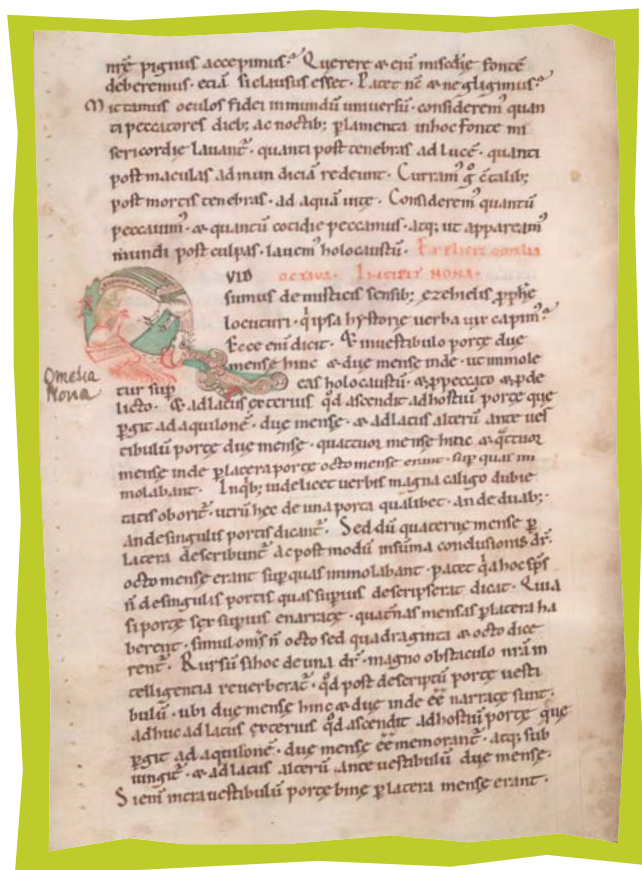 nr̄e pignus accepimus. Querere & eni᷎ mis̄c̄die fontē
deberemus · etiā si clausus esset · Patet nc̄ & negligimus.
Mittamus oculos fidei in mundū universū · considerem᷒ quan
ti peccatores dieb; ac noctib; p̄ lamenta in hoc fonte mi
sericordię lavant᷒ · quanti post tenebras ad lucē · quanti
post maculas ad mundiciā redeunt · Curram᷒ g̊ cū talib;
post mortis tenebras · ad aquā vitę · Considerem᷒ quantū
peccavim᷒ · & quantū cotidie peccamus · atq; ut appeream᷒
mundi post culpas · lavem᷒ holocaustū · Explicit omelia
QVID OCTAVA · INCIPIT NONA ·
sumus de misticis sensib; ezehielis ꝓphę
locuturi · q̇ ipsa hystorię verba vix capim᷒.
Ecce eni᷎ dicit · & in vestibulo portę duę
mensę hinc & duę mensę inde · ut immole
Omelia
Nona
tur sup
eas holocaustū · & ꝓ peccato & ꝓ de
licto · & ad latus exterius qd̄ ascendit ad hostiū portę quę
pgit ad aquilonē · duę mensę · & ad latus alterū ante ves
tibulū portę duę mensę · quattuor mensę hinc & q̇ttuor
mensę inde p̄ latera portę octo mensę erant · sup quas im
molabant · In q̇b; videlicet verbis magna caligo dubie
tatis oborit᷒ · utrū hęc de una porta qualibet · an de duab;
an de singulis portis dicant᷒ · Sed dū quaternę mensę p̄
latera describunt᷒ ac post modū in sūma conclusionis dr̄ ·
octo mensę erant sup quas immolabant · patet q̇a hoc sp̄s
n̄ de singulis portis quas supius descripserat dicat · Quia
si portę sex supius enarratę · quat᷎nas mensas p̄ latera ha
berent · simul om̄s n̄ octo sed quadraginta & octo dice
rent᷒ · Rursū si hoc de una dr̄ · magno obstaculo nr̄a in
telligentia reverberat᷒ · qd̄ post descriptū portę vesti
bulū · ubi duę mensę hinc & duę inde ēē narratę sunt ·
adhuc ad latus exterius qd̄ ascendit ad hostiū portę quę
pgit ad aquilonē · duę mensę ēē memorant᷒ · atq; sub
iungit᷒ · & ad latus alterū ante vestibulū duę mensę ·
Si eni᷎ intra vestibulū portę binę p̄ latera mensę erant ·